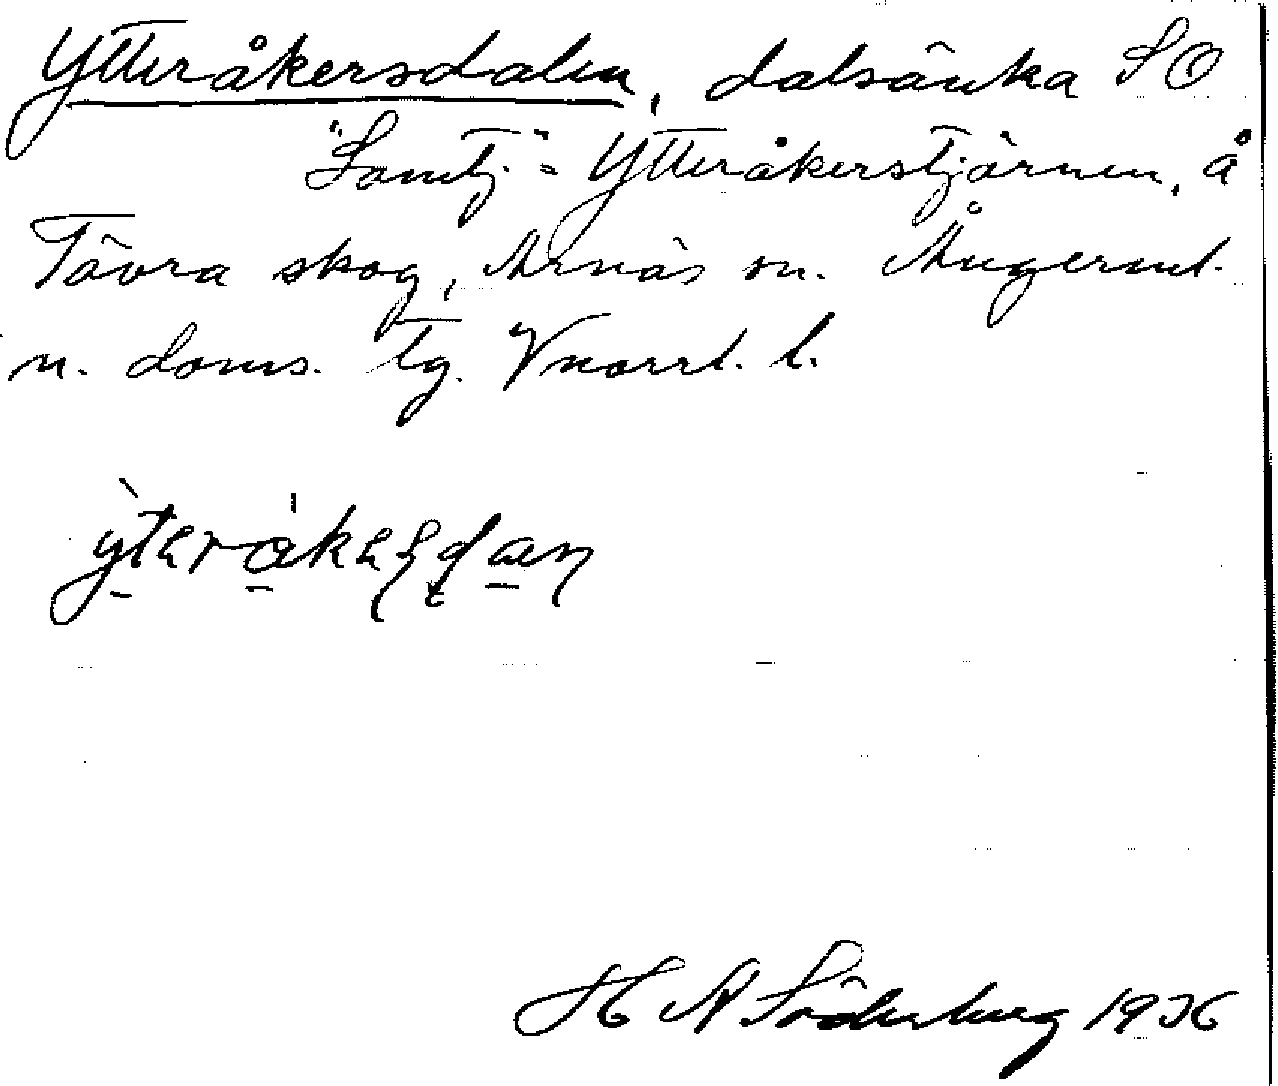 Ytteråkersdalen, dalsänka SO
"Somtj." = Ytteråkerstjärnen, å
Tävra skog, Arnäs sn. Ångerml.
n. doms. tg. Vnorrl. l.
H A Söderberg 1936